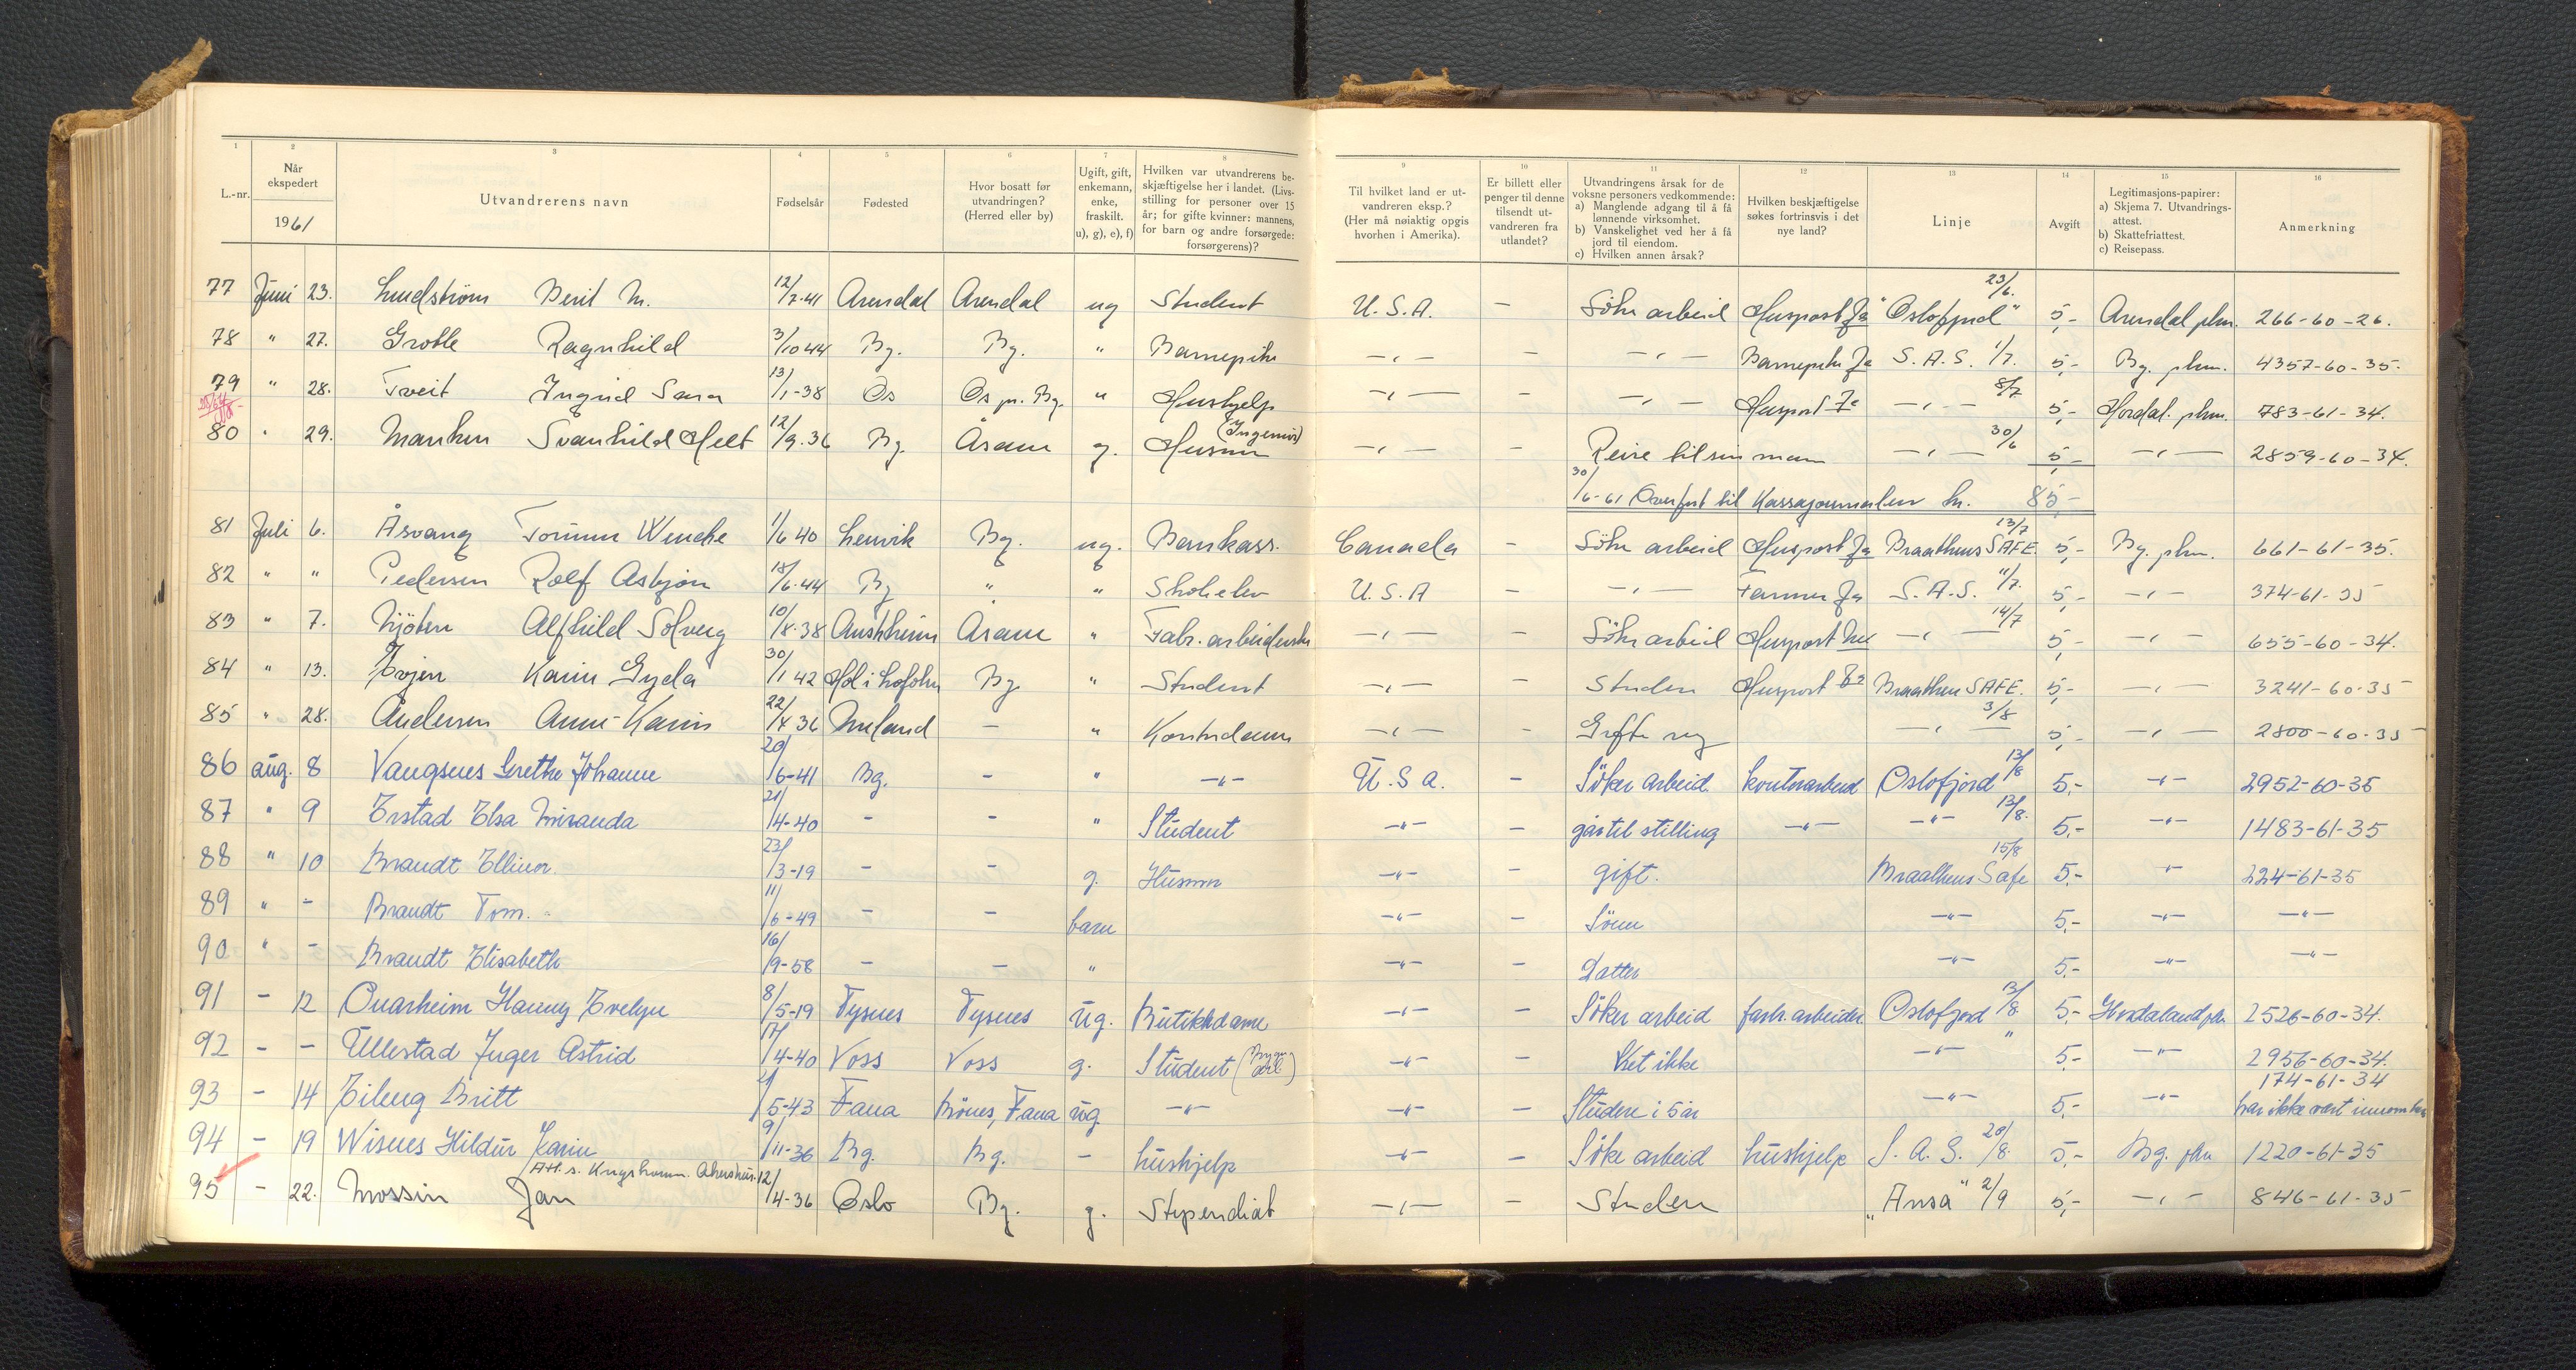 1 2 3 4 5 6 7 8 9 10 11 12 13 14 15 16
L.-nr. Når ekspedert 1961 Utvandrerens navn Fødselsår Fødested Hvor bosatt før utvandringen? (Herred eller by) Ugift, gift, enkemann, enke, fraskilt. u), g), e), f) Hvilken var utvandrerens beskjæftigelse her i landet. (Livsstilling for personer over 15 år; for gifte kvinner: mannens, for barn og andre forsørgede: forsørgerens)? Til hvilket land er utvandreren eksp.? (Her må nøiaktig opgis hvorhen i Amerika). Er billett eller penger til denne tilsendt utvandreren fra utlandet? Utvandringens årsak for de voksne personers vedkommende: a) Manglende adgang til å få lønnende virksomhet. b) Vanskelighet ved her å få jord til eiendom. c) Hvilken annen årsak? Hvilken beskjæftigelse søkes fortrinsvis i det nye land? Linje Avgift Legitimasjons-papirer: a) Skjema 7. Utvandringsattest. b) Skattefriattest. c) Reisepass. Anmerkning
77 Juni 23. Lindstrøm Berit M. 12/7-41 Arendal Arendal ug Student U.S.A. - Söke arbeid Huspost Ja "Oslofjord" 23/6. 5,- Arendal pkm. 266-60-26.
78 " 27. Grotle Ragnhild 3/10 44 Bg. Bg. " Barnepike -"- - -"- Barnepike Ja S.A.S. 1/7. 5,- Bg. pkm. 4357-60-35.
79 " 28. Tveit Ingrid Sara 13/1-38 Os Os pr. Bg. " Hushjelp -"- - -"- Huspost Ja -"- 8/7 5,- Hordal. pkm. 783-61-34.
80 " 29. Svanhild Holt 12/9.36 Bg. Åsane g. Husmor (Ingeniør) -"- - Reise til sin mann -"- 30/6 5,- -"- 2859-60-34.
30/6-61 Overført til Kassajournalen kr. 85,-
81 Juli 6. Åsvang Torunn Wenche 1/6 40 Lenvik Bg. ug. Bankass. Canada - Söke arbeid Huspost Ja Braathens SAFE 13/7 5,- Bg. pkm. 661-61-35.
82 " " Pedersen Rolf Asbjørn 18/6.44 Bg " " Skoleelev U.S.A - -"- Farmer Ja S.A.S. 11/7. 5,- -"- 374-61-35
83 " 7. Alfhild Solveig 10/8.38 Austrheim Åsane " Fabr.arbeiderske -"- - Söke arbeid Huspost -"- 14/7 5,- -"- 655-60-34.
84 " 13. Evjen Karin Gyda 30/1 42 Hol i Lofoten Bg. " Student -"- - Studere Huspost Ja Braathen SAFE. 5,- -"- 3241-60-35
85 " 28. Andersen Anne-Karin 22/4 36 Meland - " Kontordame -"- - Gifte seg -"- 3/8 5,- -"- 2800-60-35
86 aug. 8 Vangsnes Grethe Johanne 20/6-41 Bg. - " -"- U.S.A. - Söker arbeid. kontorarbeid Oslofjord 13/8 5,- -"- 2952-60-35
87 " 9 Erstad Elsa Miranda 21/4-40 - - " Student -"- - går til stilling -"- -"- 13/8. 5,- -"- 1483-61-35
88 " 10 Brandt Ellinor. 23/3-19 - - g. Husmor -"- - gift. Braathens Safe 15/8 5,- -"- 224-61-35
89 " - Brandt Tom. 11/6-49 - - barn -"- - Sönn -"- 5,- -"- -"-
90 " - Brandt Elisabeth 16/9-58 - - " -"- - Datter -"- 5,- -"- -"-
91 - 12 Onarheim Hanny Evelyn 8/5-19 Tysnes Tysnes ug. Butikkdame -"- - Söker arbeid fabr.arbeider Oslofjord 13/8 5,- Hordaland pkm 2526-60-34.
92 - - Ullestad Inger Astrid 17/4-40 Voss Voss g. Student -"- Vet ikke -"- " 5,- -"- 2956-60-34.
93 - 14 Eileng Britt 4/5-43 Fana Bönes, Fana ug. -"- -"- - Studere i 5 år -"- 5,- -"- 174-61-34 har ikke vært innom her
94 - 19 Wisnes Hildur Karin 9/11-36 Bg. Bg. - hushjelp -"- - Söke arbeid hushjelp S.A.S. 20/8. 5,- Bg. pkm 1220-61-35
Att. s. Krigskomm. Akershus.
95 - 22. Mossin Jan 12/4-36 Oslo Bg. g. Stipendiat -"- - Studere "Ansa" 2/9 5,- -"- 846-61-35